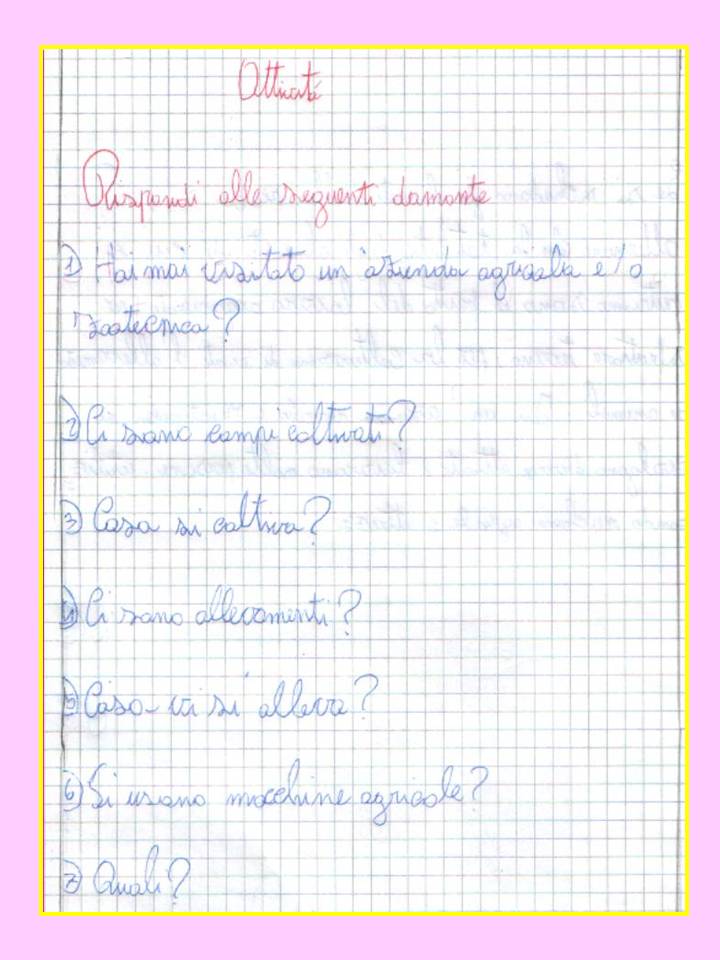 Attività
Rispondi alle seguenti domante
1) Hai mai visitato un'azienda agricola e/o
zootecnica?
2) Ci sono campi coltivati?
3) Cosa si coltiva?
4) Ci sono allevamenti?
5) Cosa vi si alleva?
6) Si usano macchine agricole?
7) Quali?